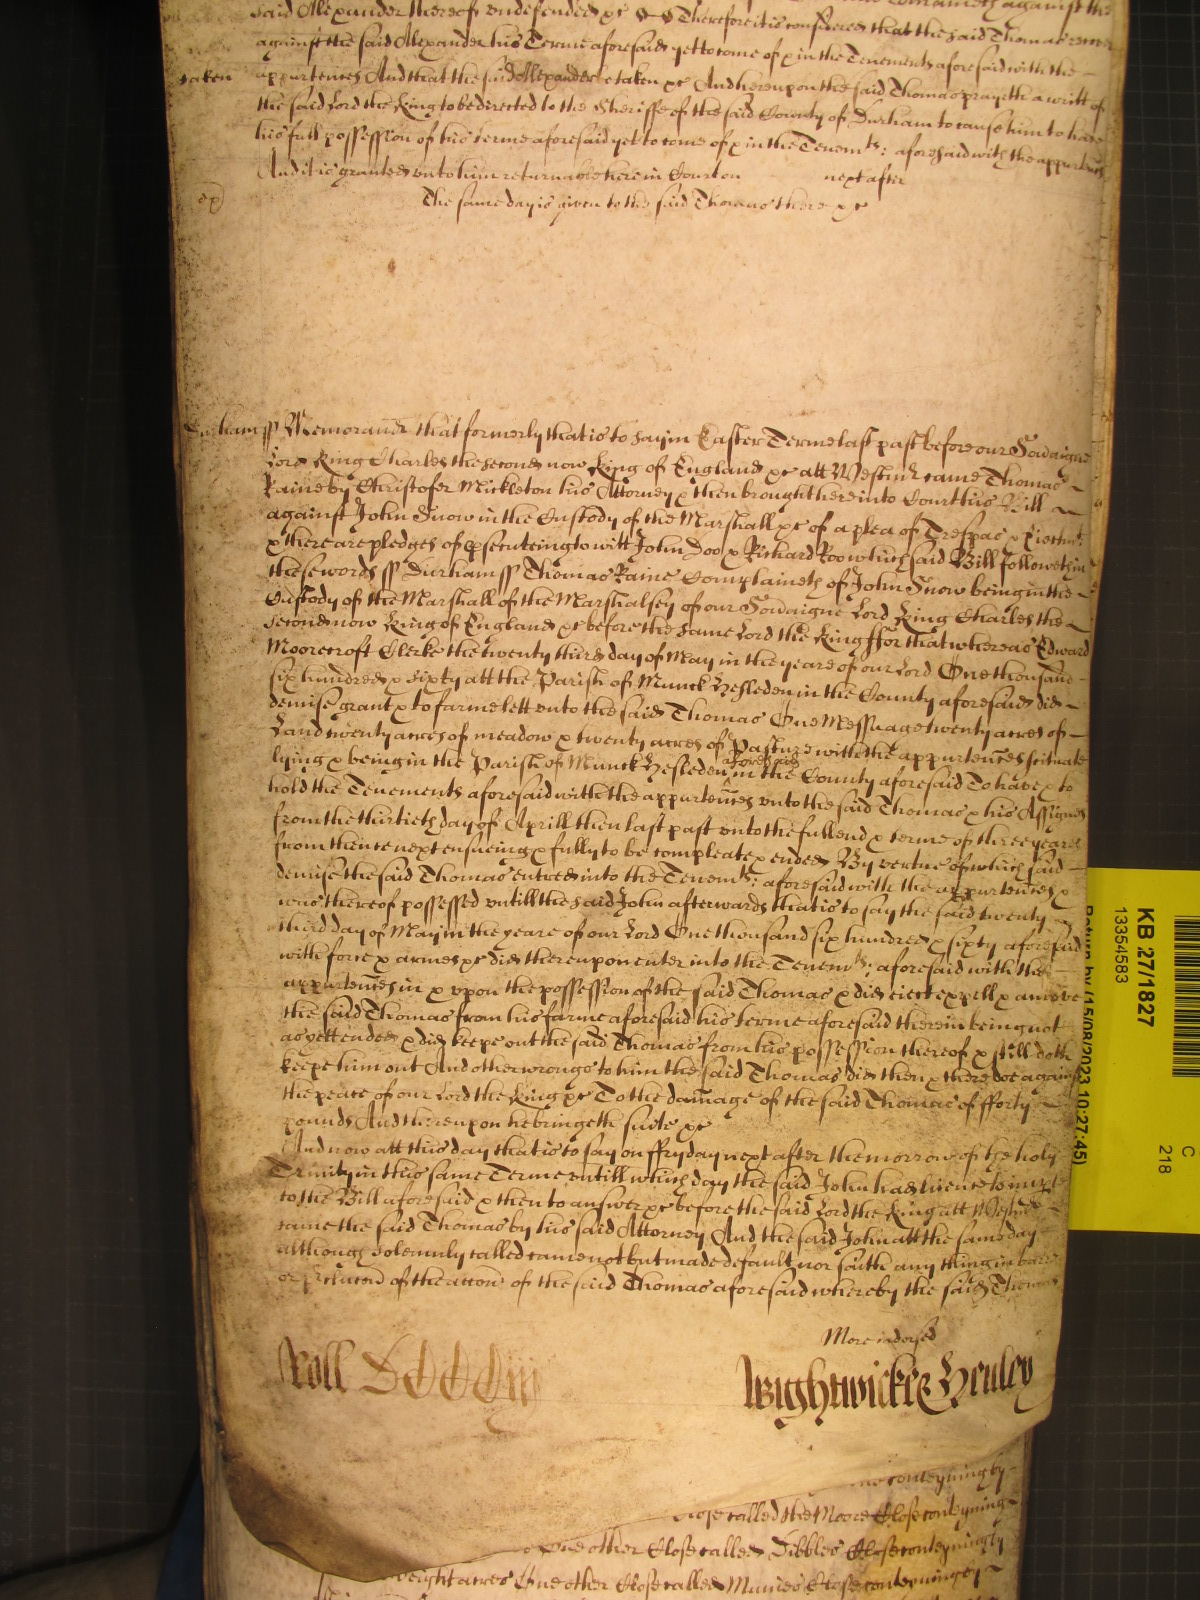 said Alexander thereof undefended &c Therefore it is considered that the said Thomas
against the said Alexander his Terme aforesaid yet to come of & in the Tenements aforesaid with the
taken appurtences And that the said Alexander be taken &c And hereupon the said Thomas prayeth a writt of
the said Lord the King to be directed to the Sheriffe of the said County of Durham to cause him to have
his full possession of his terme aforesaid yet to come of & in the Tenemts: aforesaid with the appurtences
And it is granted unto him returnable here in Court on next after
The same day is given to the said Thomas there &c
Durham ss Memorand that formerly that is to say in Easter Terme last past before our Sovaigne
Lord King Charles the second now King of England &c att Westmr came Thomas
Raine by Christofer Mickleton his Attorney & then brought here into Court his Bill
against John Snow in the Custody of the Marshall &c of a plea of Trespas & Eiectmt:
& there are pledges of psecuteing to witt John Doo & Richard Roo which said Bill followeth in
these words ss Durham ss Thomas Raine Complaineth of John Snow being in the
Custody of the Marshall of the Marshalsey of our Sovaigne Lord King Charles the
second now King of England &c before the same Lord the King ffor that whereas Edward
Moorecroft Clerke the twenty third day of May in the yeare of our Lord One thousand
six hundred & sixty att the Parish of Munck Hesleden in the County aforesaid did
demise grant & to farme lett unto the said Thomas One Messuage twenty acres of
Land twenty acres of meadow & twenty acres of Pasture with the appurtences scituate
lying & being in the Parish of Munck Hesleden aforesaid in the County aforesaid To have & to
hold the Tenements aforesaid with the appurtences unto the said Thomas & his Assignes
from the thirtieth day of Aprill then last past unto the full end & terme of three yeares
from thence next ensueing & fully to be compleate & ended By vertue of which said
demise the said Thomas entred into the Tenemts: aforesaid with the appurtences &
was thereof possessed untill the said John afterwards that is to say the said twenty
third day of May in the yeare of our Lord One thousand six hundred & sixty aforesaid
with force & armes &c did thereupon enter into the Tenemts: aforesaid with the
appurtences in & upon the possession of the said Thomas & did eiect expell & amove
the said Thomas from his farme aforesaid his terme aforesaid therein being not
as yett ended & did keepe out the said Thomas from his possession thereof & still doth
keepe him out And other wrongs to him the said Thomas did then & there doe against
the peace of our Lord the King &c To the damage of the said Thomas of fforty
pounds And thereupon he bringeth suite &c
And now att this day that is to say on ffryday next after the morrow of the holy
Trinity in this same Terme untill which day the said John had licence to imparle
to the Bill aforesaid & then to answer &c before the said Lord the King att Westmr
came the said Thomas by his said Attorney And the said John att the same day
although solemnly called came not but made default nor saith any thing in barre
or preclucon of the accon of the said Thomas aforesaid whereby the said Thomas
More indorsed
Roll
Wightwicke & Henley
conteyning by
close called the Moore Close conteyning
One other Close called Dibbles Close conteyning by
eight acres One other Close called Close conteyning
KB 27/1827
13354583
Return by (15/08/2023 10:27:45)
C
218